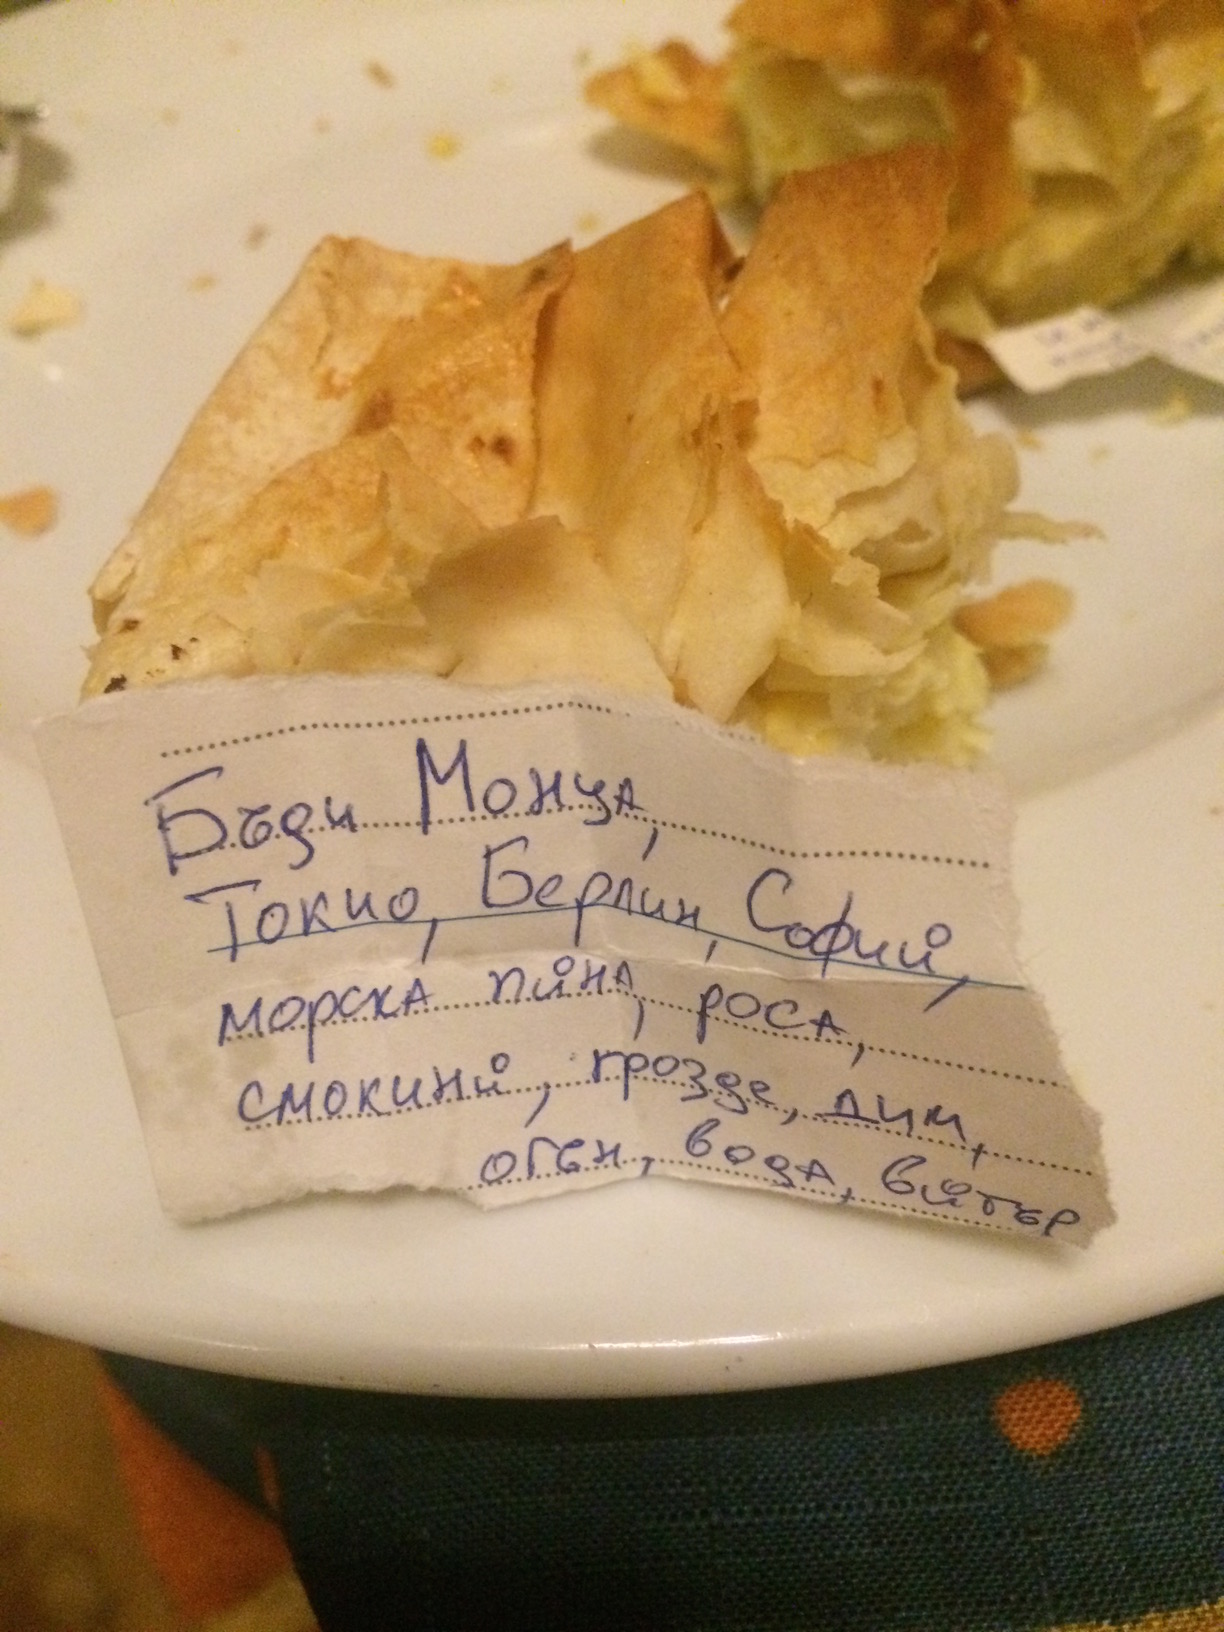 Бъди Монца,
Токио, Берлин, София,
морска пяна, роса,
смокиня, грозде, дим,
огън, вода, вятър